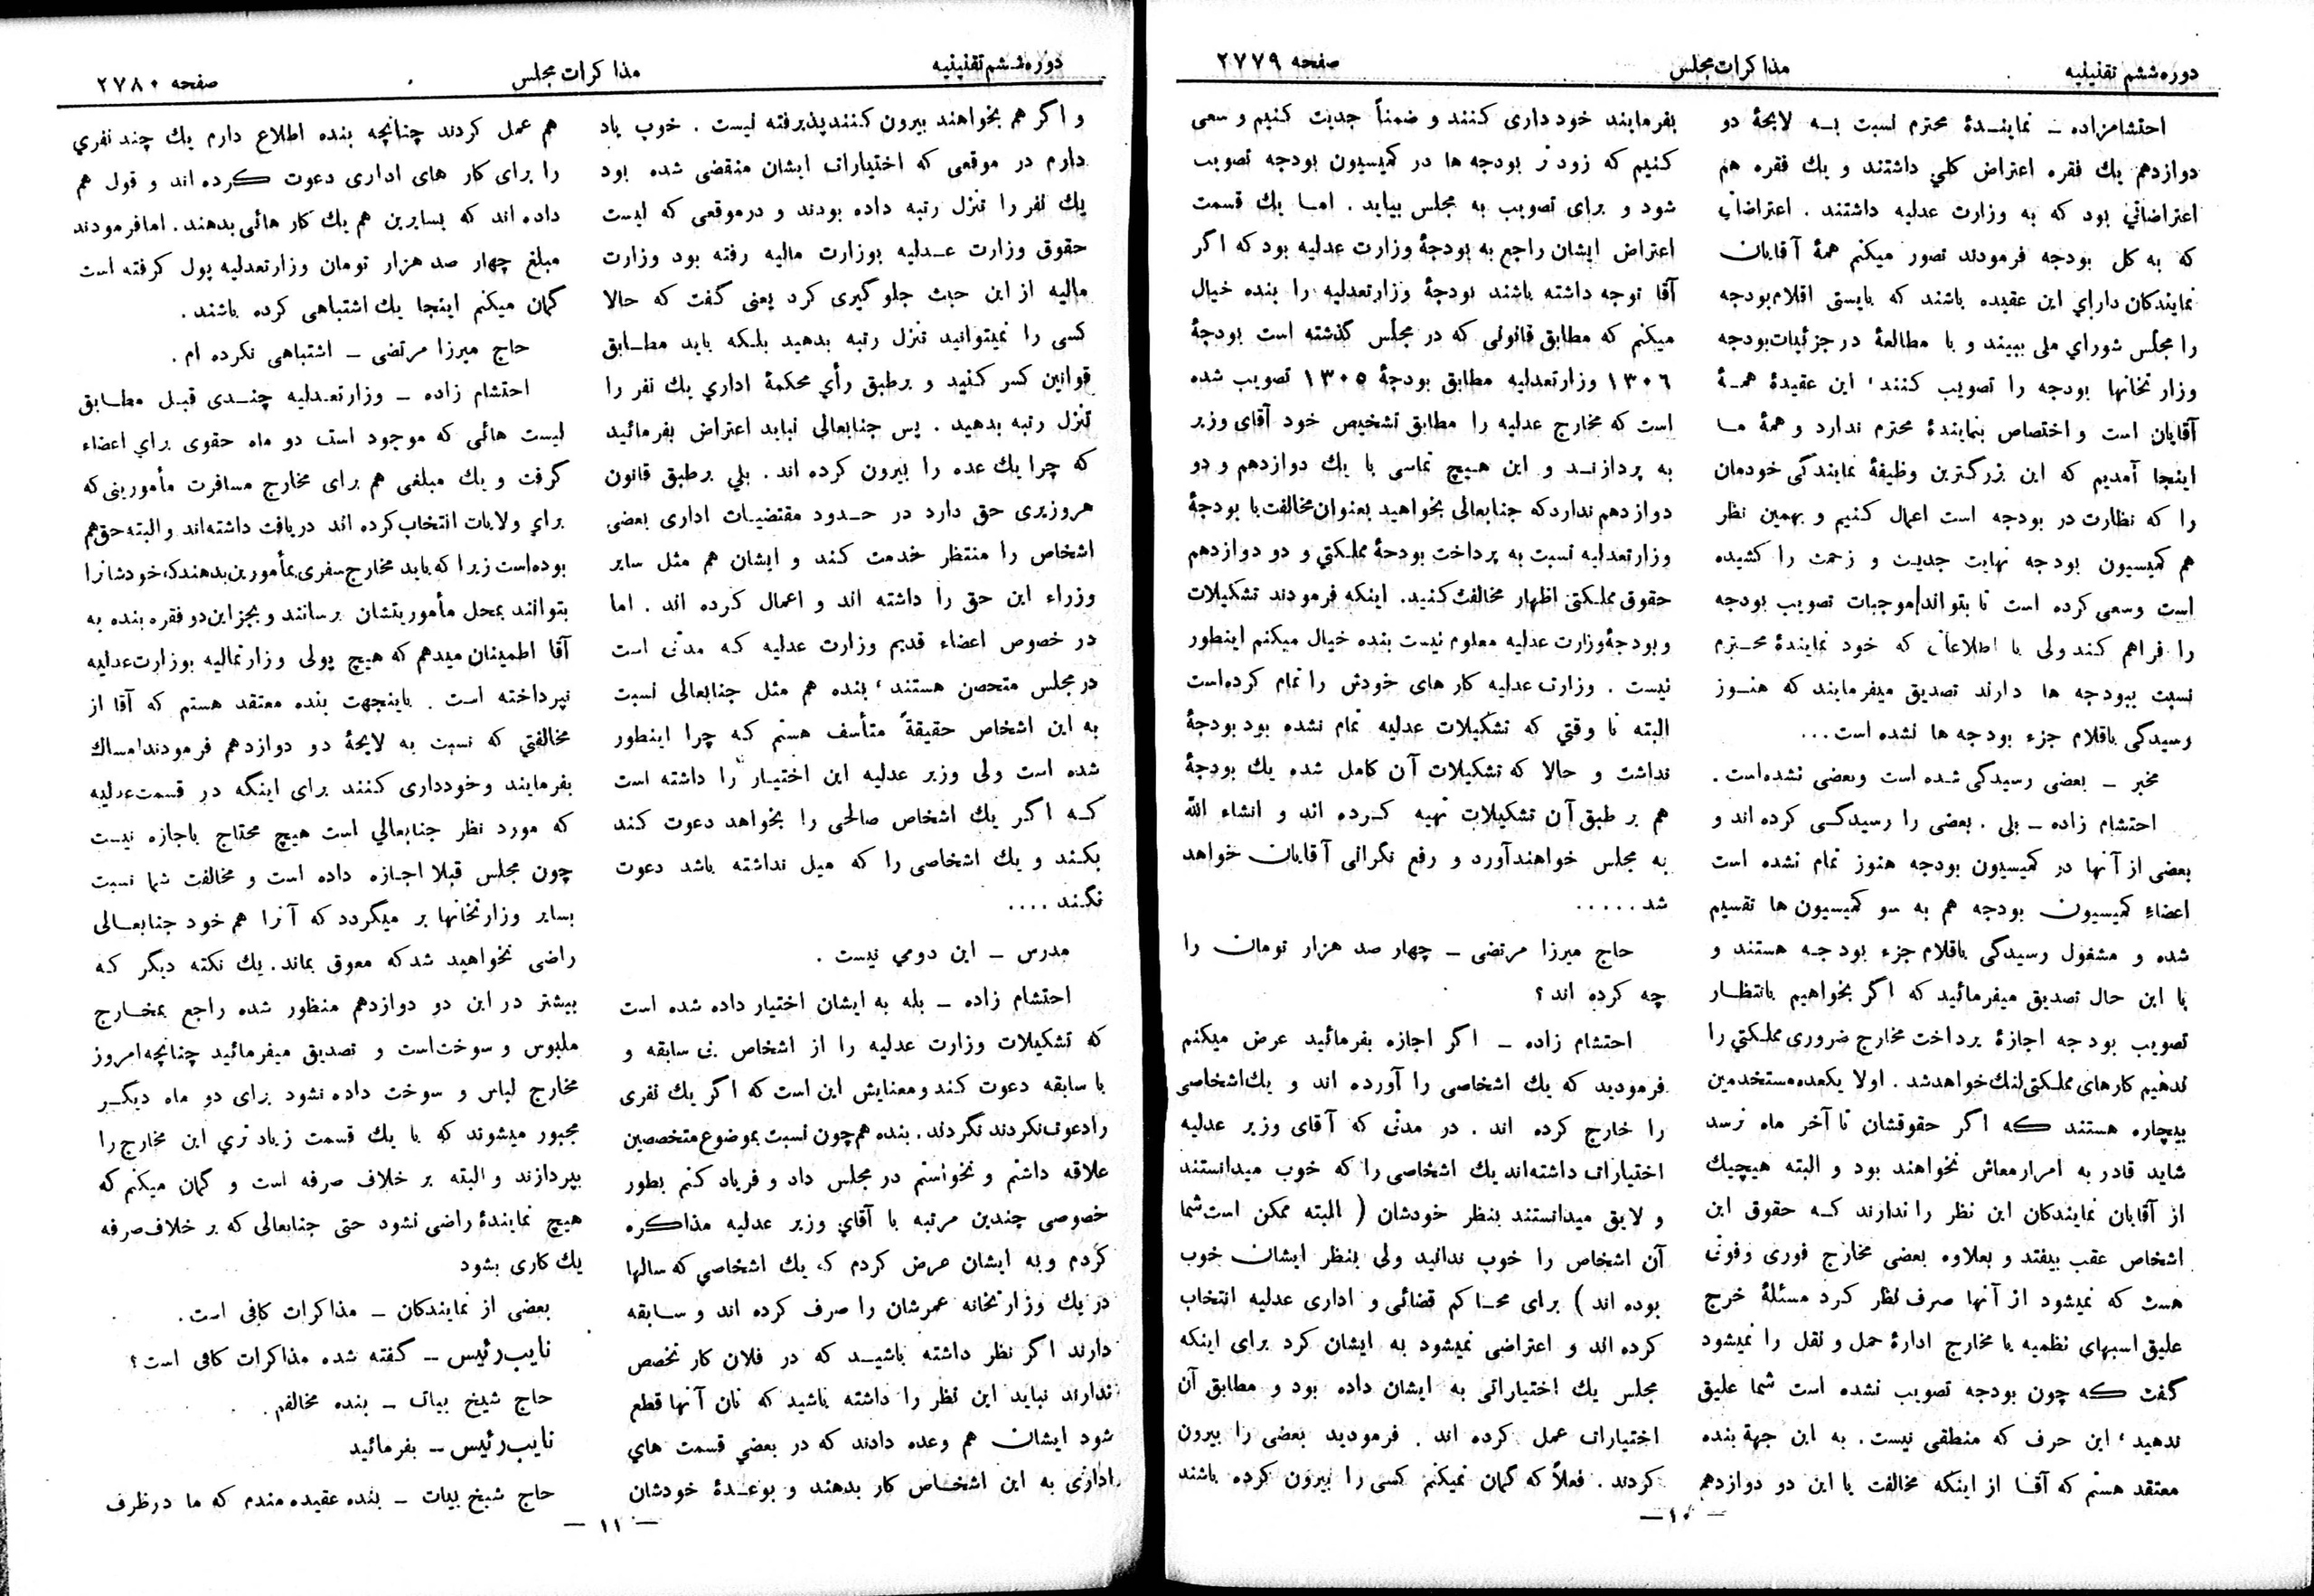 دوره ششم تقنینیه
مذاکرات مجلس
صفحه ۲۷۷۹
احتشامزاده ـ نماینـدۀ محترم نسبت بـه لایحۀ دو
دوازدهم یك فقره اعتراض کلي داشتند و یك فقره هم
اعتراضاتي بود که به وزارت عدلیه داشتند . اعتراضات
که به کل بودجه فرمودند تصور میکنم همۀ آقایان
نمایندکان داراي این عقیده باشند که بایستی اقلام بودجه
را مجلس شوراي ملی ببیند و با مطالعۀ در جزئیات بودجه
وزارتخانها بودجه را تصویب کنند ، این عقیدۀ همـۀ
آقایان است و اختصاص بنمایندۀ محترم ندارد و همۀ مـا
اینجا آمدیم که این بزرگترین وظیفۀ نمایندگی خودمان
را که نظارت در بودجه است اعمال کنیم و بهمین نظر
هم کمیسیون بودجه نهایت جدیت و زحمت را کشیده
است وسعی کرده است تا بتواند موجبات تصویب بودجه
را فراهم کند ولی با اطلاعاتی که خود نمایندۀ محـترم
نسبت ببودجه ها دارند تصدیق میفرمایند که هنـوز
رسیدگی باقلام جزء بودجه ها نشده است ...
مخبر ـ بعضی رسیدگی شده است وبعضی نشده است .
احتشام زاده ـ بلی . بعضی را رسیدگـی کرده اند و
بعضی از آنها در کمیسیون بودجه هنوز تمام نشده است
اعضاء کمیسیون بودجه هم به سو کمیسیون ها تقسیم
شده و مشغول رسیدگی باقلام جزء بودجـه هستند و
با این حال تصدیق میفرمائید که اگر بخواهیم بانتظـار
تصویب بودجه اجازۀ پرداخت مخارج ضروری مملکتي را
ندهیم کارهای مملکتی لنك خواهد شد . اولا یکعده مستخدمین
بیچاره هستند که اگر حقوقشان تا آخر ماه نرسد
شاید قادر به امرار معاش نخواهند بود و البته هیچیك
از آقایان نمایندکان این نظر را ندارند کـه حقوق این
اشخاص عقب بیفتد و بعلاوه بعضی مخارج فوری وفوتی
هست که نمیشود از آنها صرف نظر کرد مسئلۀ خرج
علیق اسبهای نظمیه یا مخارج ادارۀ حمل و نقل را نمیشود
گفت که چون بودجه تصویب نشده است شما علیق
ندهید ، این حرف که منطقی نیست . به این جهة بنده
معتقد هستم که آقـا از اینکه مخالفت با این دو دوازدهم
بفرمایند خود داری کنند و ضمناً جدیت کنیم وسعی
کنیم که زود تر بودجه ها در کمیسیون بودجه تصویب
شود و برای تصویب به مجلس بیاید . امـا یك قسمت
اعتراض ایشان راجع به بودجۀ وزارت عدلیه بود که اگر
آقا توجه داشته باشند بودجۀ وزارتعدلیه را بنده خیال
میکنم که مطابق قانونی که در مجلس گذشته است بودجۀ
۱۳۰۶ وزارتعدلیه مطابق بودجۀ ۱۳۰۵ تصویب شده
است که مخارج عدلیه را مطابق تشخیص خود آقای وزیر
به پردازنـد و این هیچ تماسی با یك دوازدهم و دو
دوازدهم ندارد که جنابعالی بخواهید بعنوان مخالفت با بودجۀ
وزارتعدلیه نسبت به پرداخت بودجۀ مملکتي و دو دوازدهم
حقوق مملکتی اظهار مخالفت کنید. اینکه فرمودند تشکیلات
وبودجۀ وزارت عدلیه معلوم نیست بنده خیال میکنم اینطور
نیست . وزارت عدلیه کار های خودش را تمام کرده است
البته تا وقتي که تشکیلات عدلیه تمام نشده بود بودجۀ
نداشت و حالا که تشکیلات آن کامل شده یك بودجۀ
هم بر طبق آن تشکیلات تهیه کـرده اند و انشاء الله
به مجلس خواهند آورد و رفع نگرانی آقایان خواهد
شد .....
حاج میرزا مرتضی ـ چهار صد هزار تومان را
چه کرده اند ؟
احتشام زاده ـ اگر اجازه بفرمائید عرض میکنم
فرمودید که یك اشخاصی را آورده اند و یك اشخاصی
را خارج کرده اند . در مدتی که آقای وزیر عدلیه
اختیارات داشته اند یك اشخاصی را که خوب میدانستند
و لایق میدانستند بنظر خودشان ( البته ممکن است شما
آن اشخاص را خوب ندانید ولی بنظر ایشان خوب
بوده اند ) برای محـاکم قضائی و اداری عدلیه انتخاب
کرده اند و اعتراضی نمیشود به ایشان کرد برای اینکه
مجلس یك اختیاراتی به ایشان داده بود و مطابق آن
اختیارات عمل کرده اند . فرمودید بعضی را بیرون
کردند . فعلاً که گمان نمیکنم کسی را بیرون کرده باشند
ـ ۱۰ ـ
دوره ششم تقنینیه
مذاکرات مجلس
صفحه ۲۷۸۰
و اگر هم بخواهند بیرون کنند پذیرفته نیست . خوب یاد
دارم در موقعی که اختیارات ایشان منقضی شده بود
یك نفر را تنزل رتبه داده بودند و درموقعی که لیست
حقوق وزارت عـدلیه بوزارت مالیه رفته بود وزارت
مالیه از این حیث جلوگیری کرد یعنی گفت که حالا
کسی را نمیتوانید تنزل رتبه بدهید بلکه باید مطـابق
قوانین کسر کنید و برطبق رأي محکمۀ اداري یك نفر را
تنزل رتبه بدهید . پس جنابعالی نباید اعتراض بفرمائید
که چرا یك عده را بیرون کرده اند . بلي برطبق قانون
هروزیری حق دارد در حـدود مقتضیـات اداری بعضی
اشخاص را منتظر خدمت کند و ایشان هم مثل سایر
وزراء این حق را داشته اند و اعمال کرده اند . اما
در خصوص اعضاء قدیم وزارت عدلیه که مدتی است
در مجلس متحصن هستند ، بنده هم مثل جنابعالی نسبت
به این اشخاص حقیقةً متأسف هستم که چرا اینطور
شده است ولی وزیر عدلیه این اختیـار را داشته است
کـه اگر یك اشخاص صالحی را بخواهد دعوت کند
بکند و یك اشخاصی را که میل نداشته باشد دعوت
نکند ....
مدرس ـ این دومي نیست .
احتشام زاده ـ بله به ایشان اختیار داده شده است
که تشکیلات وزارت عدلیه را از اشخاص بی سابقه و
با سابقه دعوت کند ومعنایش این است که اگر یك نفری
را دعوت نکردند نکردند . بنده هم چون نسبت بموضوع متخصصین
علاقه داشتم و نخواستم در مجلس داد و فریاد کنم بطور
خصوصی چندین مرتبه با آقاي وزیر عدلیه مذاکره
کردم وبه ایشان عرض کردم که یك اشخاصي که سالها
در یك وزارتخانه عمرشان را صرف کرده اند و سـابقه
دارند اگر نظر داشته باشیـد که در فلان کار تخصص
ندارند نباید این نظر را داشته باشید که نان آنها قطع
شود ایشان هم وعده دادند که در بعضي قسمت هاي
اداری به این اشخـاص کار بدهند و بوعـدۀ خودشان
هم عمل کردند چنانچه بنده اطلاع دارم یك چند نفري
را برای کار های اداری دعوت کرده اند و قول هم
داده اند که بسایرین هم یك کار هائی بدهند . اما فرمودند
مبلغ چهار صد هزار تومان وزارتعدلیه پول گرفته است
گمان میکنم اینجا یك اشتباهی کرده باشند .
حاج میرزا مرتضی ـ اشتباهی نکرده ام .
احتشام زاده ـ وزارتعـدلیه چنـدی قبـل مطـابق
لیست هائی که موجود است دو ماه حقوق براي اعضاء
گرفت و یك مبلغی هم برای مخارج مسافرت مأمورینی که
براي ولایات انتخاب کرده اند دریافت داشته اند و البته حق هم
بوده است زیرا که باید مخارج سفری بمأمورین بدهند که خودشانرا
بتوانند بمحل مأموریتشان برسانند و بجز این دو فقره بنده به
آقا اطمینان میدهم که هیچ پولی وزارتمالیه بوزارت عدلیه
نپرداخته است . باینجهت بنده معتقد هستم که آقا از
مخالفتي که نسبت به لایحۀ دو دوازدهم فرمودند امساك
بفرمایند و خودداری کنند برای اینکه در قسمت عدلیه
که مورد نظر جنابعالي است هیچ محتاج باجازه نیست
چون مجلس قبلا اجـازه داده است و مخالفت شما نسبت
بسایر وزارتخانها بر میگردد که آنرا هم خود جنابعـالی
راضی نخواهید شد که معوق بماند . یك نکته دیگر که
بیشتر در این دو دوازدهم منظور شده راجع بمخـارج
ملبوس و سوخت است و تصدیق میفرمائید چنانچه امروز
مخارج لباس و سوخت داده نشود برای دو ماه دیگـر
مجبور میشوند که با یك قسمت زیاد تري این مخارج را
بپردازند و البته بر خلاف صرفه است و گمان میکنم که
هیچ نمایندۀ راضی نشود حتی جنابعالی که بر خلاف صرفه
یك کاری بشود
بعضی از نمایندکان ـ مذاکرات کافی است .
نایب رئیس ـ گفته شده مذاکرات کافی است ؟
حاج شیخ بیات ـ بنده مخالفم .
نایب رئیس ـ بفرمائید
حاج شیخ بیات ـ بنده عقیده مندم که ما درظرف
ـ ۱۱ ـ